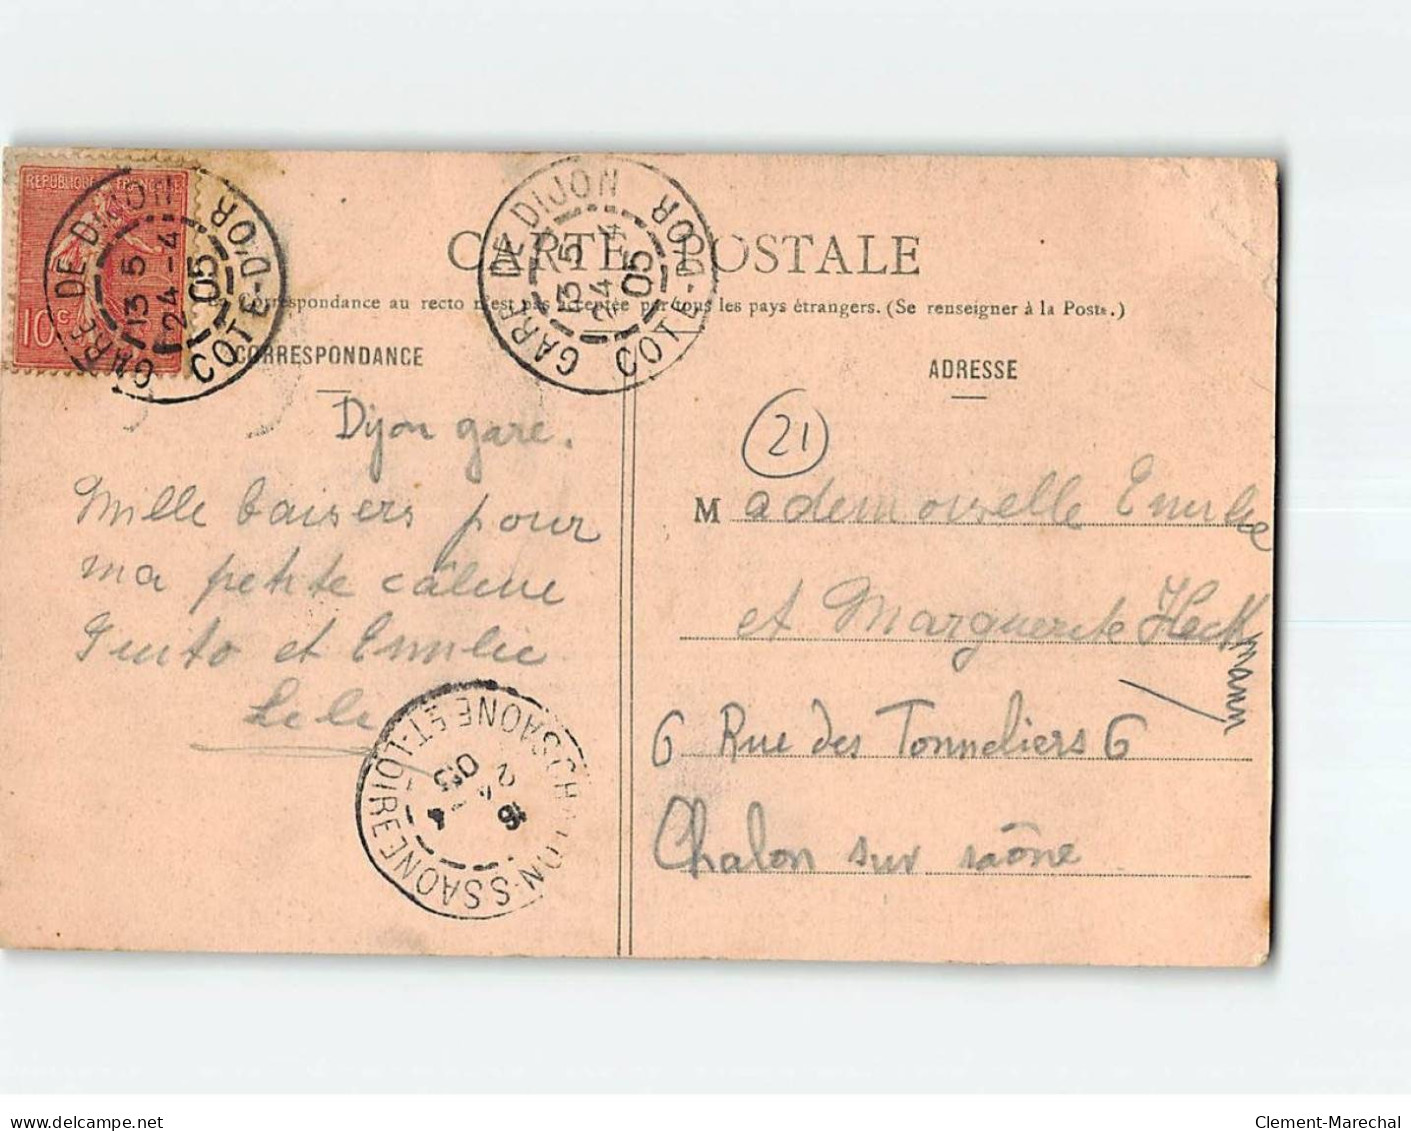 REPUBLIQUE FRANÇAISE
10 c
GARE DE DIJON
13 5
24 - 4
05
COTE-D'OR
GARE DE DIJON
13 5
24 - 4
05
COTE-D'OR
CARTE POSTALE
La correspondance au recto n'est pas acceptée par tous les pays étrangers. (Se renseigner à la Poste.)
CORRESPONDANCE
Dijon gare.
Mille baisers pour
ma petite câline
et Emilie
Lili
CHALON-S-SAONE
SAONE ET-LOIRE
05
ADRESSE
21
Mademoiselle Emilie
et Marguerite Heckmann
6 Rue des Tonneliers 6
Chalon sur saône
delcampe.net
Clement-Marechal